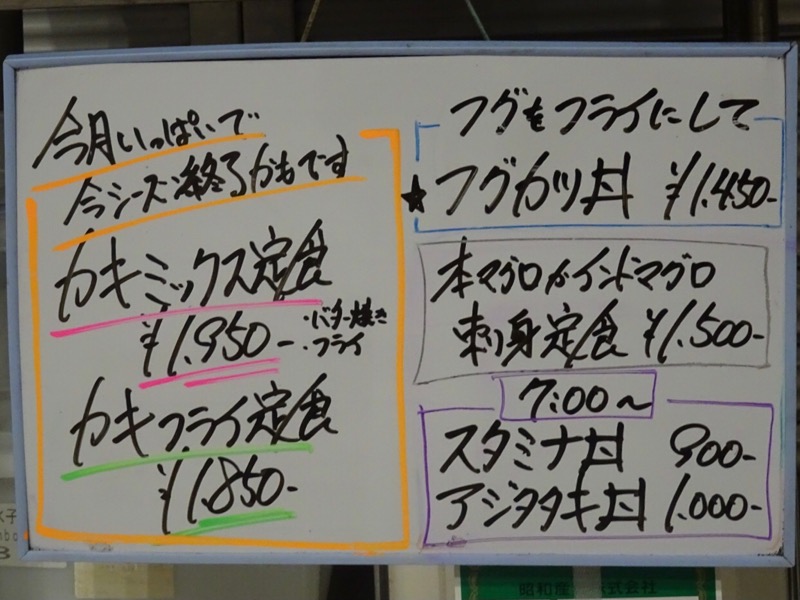 今月いっぱいで
今シーズン終了かもです
カキミックス定食
¥1.950-
・バター焼き
・フライ
カキフライ定食
¥1.850-
フグをフライにして
★フグカツ丼 ¥1.450-
本マグロかインドマグロ
刺身定食 ¥1.500-
7:00〜
スタミナ丼 900-
アジタタキ丼 1.000-
昭和産 株式会社